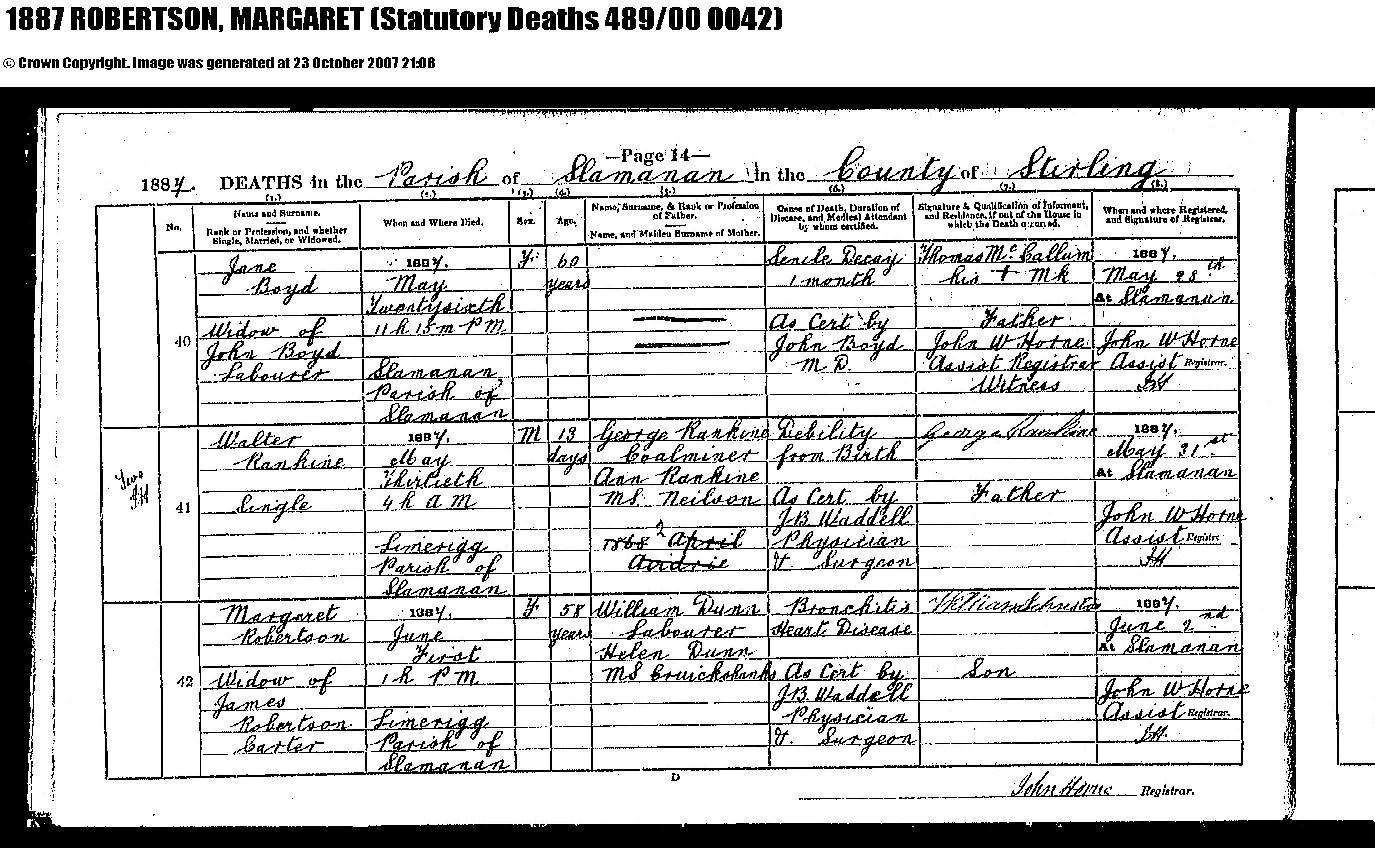 1887 ROBERTSON, MARGARET (Statutory Deaths 489/00 0042)
© Crown Copyright. Image was generated at 23 October 2007 21:08
—Page 14—
1887. DEATHS in the Parish of Slamanan in the County of Stirling
(1.) (2.) (3.) (4.) (5.) (6.) (7.) (8.)
No.
Name and Surname.
Rank or Profession, and whether
Single, Married, or Widowed.
When and Where Died.
Sex.
Age.
Name, Surname, & Rank or Profession
of Father.
Name, and Maiden Surname of Mother.
Cause of Death, Duration of
Disease, and Medical Attendant
by whom certified.
Signature & Qualification of Informant,
and Residence, if out of the House in
which the Death occurred.
When and where Registered,
and Signature of Registrar.
40
Jane
Boyd
Widow of
John Boyd
Labourer
1887.
May
Twentysixth
11 h 15 m P M
Slamanan
Parish of
Slamanan
F
60
years
Senile Decay
1 month
As Cert by
John Boyd
M.D.
Thomas McCallum
his + Mk
Father
John W Horne
Assist Registrar
Witness
1887.
May 28th
At Slamanan
John W Horne
Assist Registrar.
JH
41
Walter
Rankine
Single
1887.
May
Thirtieth
4 h A M
Limerigg
Parish of
Slamanan
M
13
days
George Rankine
Coalminer
Ann Rankine
MS Neilson
1868 2 April
Airdrie
Debility
from Birth
As Cert by
J.B. Waddell
Physician
& Surgeon
George Rankine
Father
1887.
May 31st
At Slamanan
John W Horne
Assist Registrar
JH
42
Margaret
Robertson
Widow of
James
Robertson
Carter
1887.
June
First
1 h P M
Limerigg
Parish of
Slamanan
F
58
years
William Dunn
Labourer
Helen Dunn
MS Cruickshanks
Bronchitis
Heart Disease
As Cert by
J.B. Waddell
Physician
& Surgeon
William Johnston
Son
1887.
June 2nd
At Slamanan
John W Horne
Assist Registrar.
JH.
D
John Horne Registrar.